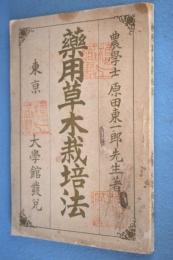 農學士 原田東一郎先生著
藥用草木栽培法
東京 大學館發兌